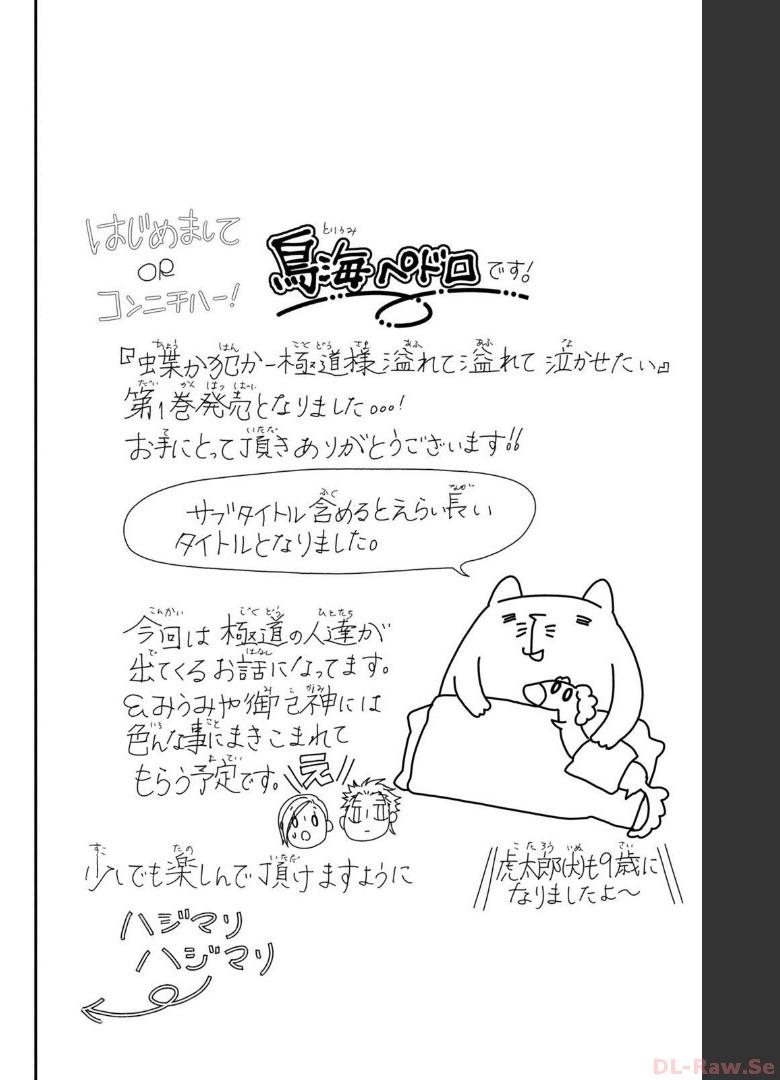 はじめまして
OR
コンニチハー!
鳥海ペドロです!
『蝶か犯か 極道様 溢れて溢れて 泣かせたい』
第1巻発売となりました...!
お手にとって頂きありがとうございます!!
サブタイトル含めるとえらい長い
タイトルとなりました。
今回は極道の人達が
出てくるお話になってます。
&みうみや御子神には
色んな事にまきこまれて
もらう予定です。
え
少しでも楽しんで頂けますように
ハジマリ
ハジマリ
虎太郎(犬)も9歳に
なりましたよ〜
DL-Raw.Se